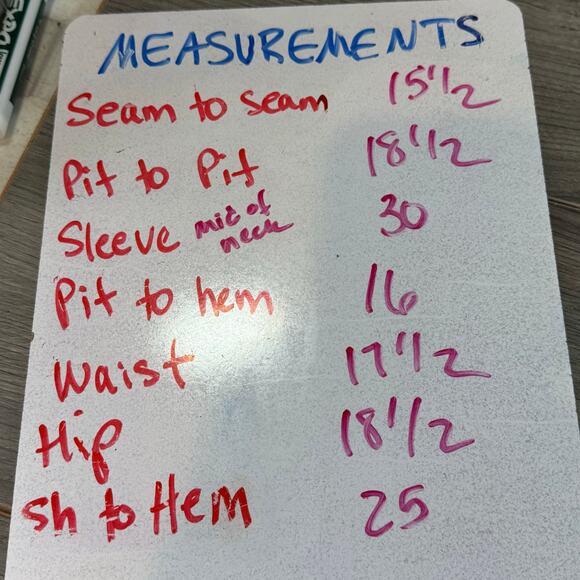 MEASUREMENTS
Seam to seam 15 1/2
Pit to Pit 18 1/2
Sleeve mid of neck 30
Pit to hem 16
Waist 17 1/2
Hip 18 1/2
Sh to Hem 25